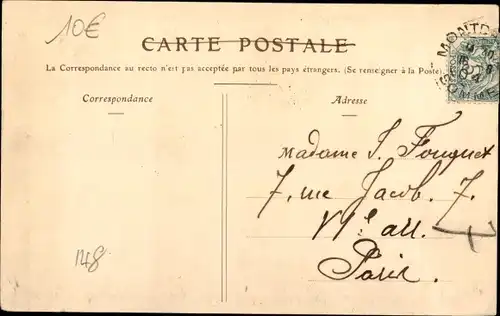 10€
CARTE POSTALE
La Correspondance au recto n'est pas acceptée par tous les pays étrangers. (Se renseigner à la Poste)
Correspondance
Adresse
Madame J. Fouquet
7, rue Jacob. 7.
VIe arr.
Paris.
148
MONTD
OMME